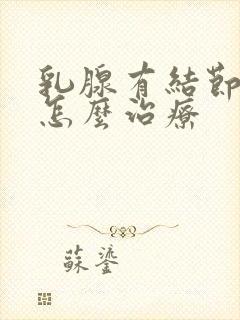 乳腺有結節
怎麼治療
蘇鎏